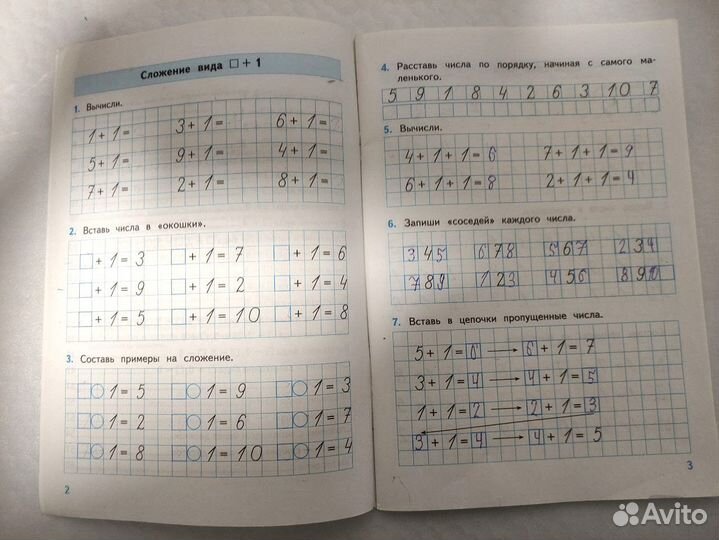 Сложение вида □ + 1
1. Вычисли.
1 + 1 = 3 + 1 = 6 + 1 =
5 + 1 = 9 + 1 = 4 + 1 =
7 + 1 = 2 + 1 = 8 + 1 =
2. Вставь числа в «окошки».
□ + 1 = 3 □ + 1 = 7 □ + 1 = 6
□ + 1 = 9 □ + 1 = 2 □ + 1 = 4
□ + 1 = 5 □ + 1 = 10 □ + 1 = 8
3. Составь примеры на сложение.
□○1 = 5 □○1 = 9 □○1 = 3
□○1 = 2 □○1 = 6 □○1 = 7
□○1 = 8 □○1 = 10 □○1 = 4
2
4. Расставь числа по порядку, начиная с самого ма-
ленького.
5 9 1 8 4 2 6 3 10 7
5. Вычисли.
4 + 1 + 1 = 6 7 + 1 + 1 = 9
6 + 1 + 1 = 8 2 + 1 + 1 = 4
6. Запиши «соседей» каждого числа.
3 4 5 6 7 8 5 6 7 2 3 4
7 8 9 1 2 3 4 5 6 8 9 10
7. Вставь в цепочки пропущенные числа.
5 + 1 = 6 → 6 + 1 = 7
3 + 1 = 4 → 4 + 1 = 5
1 + 1 = 2 → 2 + 1 = 3
3 + 1 = 4 → 4 + 1 = 5
3
Avito